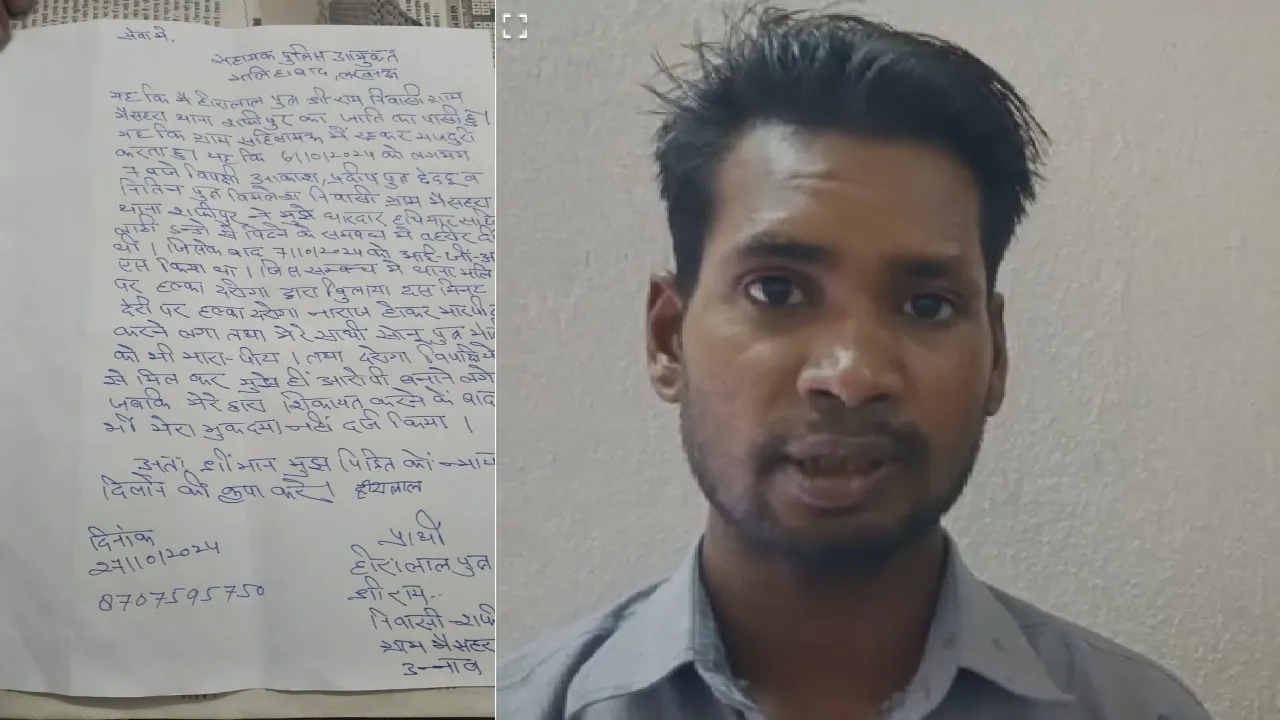 सेवा में,
सहायक पुलिस आयुक्त
मलिहाबाद, लखनऊ
यह कि मैं हीरालाल पुत्र श्री राम निवासी ग्राम
मैसहरा थाना रहीमपुर का जाति का पासी हूं।
यह कि ग्राम सहिलामऊ में रहकर मजदुरी
करता हूं। यह कि 6/10/2024 को लगभग
7 बजे विपक्षी आकाश, प्रदीप पुत्र छेददू व
नितिन पुत्र विमलेश निवासी ग्राम मैसहरा
थाना ने मुझे धारदार हथियार
लाठी डन्डो से पिटने के सम्बन्ध में तहरीर दी
थी। जिसके बाद 7/10/2024 को आई-जी-आ
एस किया था। जिस सम्बन्ध में थाना मलि
पर हल्का दरोगा द्वारा बुलाया दस मिनट
देरी पर हल्का दरोगा नाराज होकर मारपी
करने लगा तथा मेरे साथी सोनू पुत्र
को भी मारा-पीटा। तथा दरोगा विपक्षियो
से मिल कर मुझे ही आरोपी बनाने लगे
जबकि मेरे द्वारा शिकायत करने के बाद
भी मेरा मुकदमा नहीं दर्ज किया।
अतः श्रीमान मुझ पिडित को न्याय
दिलाने की कृपा करे। हीरालाल
दिनांक
27/10/2024
8707595750
प्रार्थी
हीरालाल पुत्र
श्री राम-
निवासी-
ग्राम मैसहर
उन्नाव